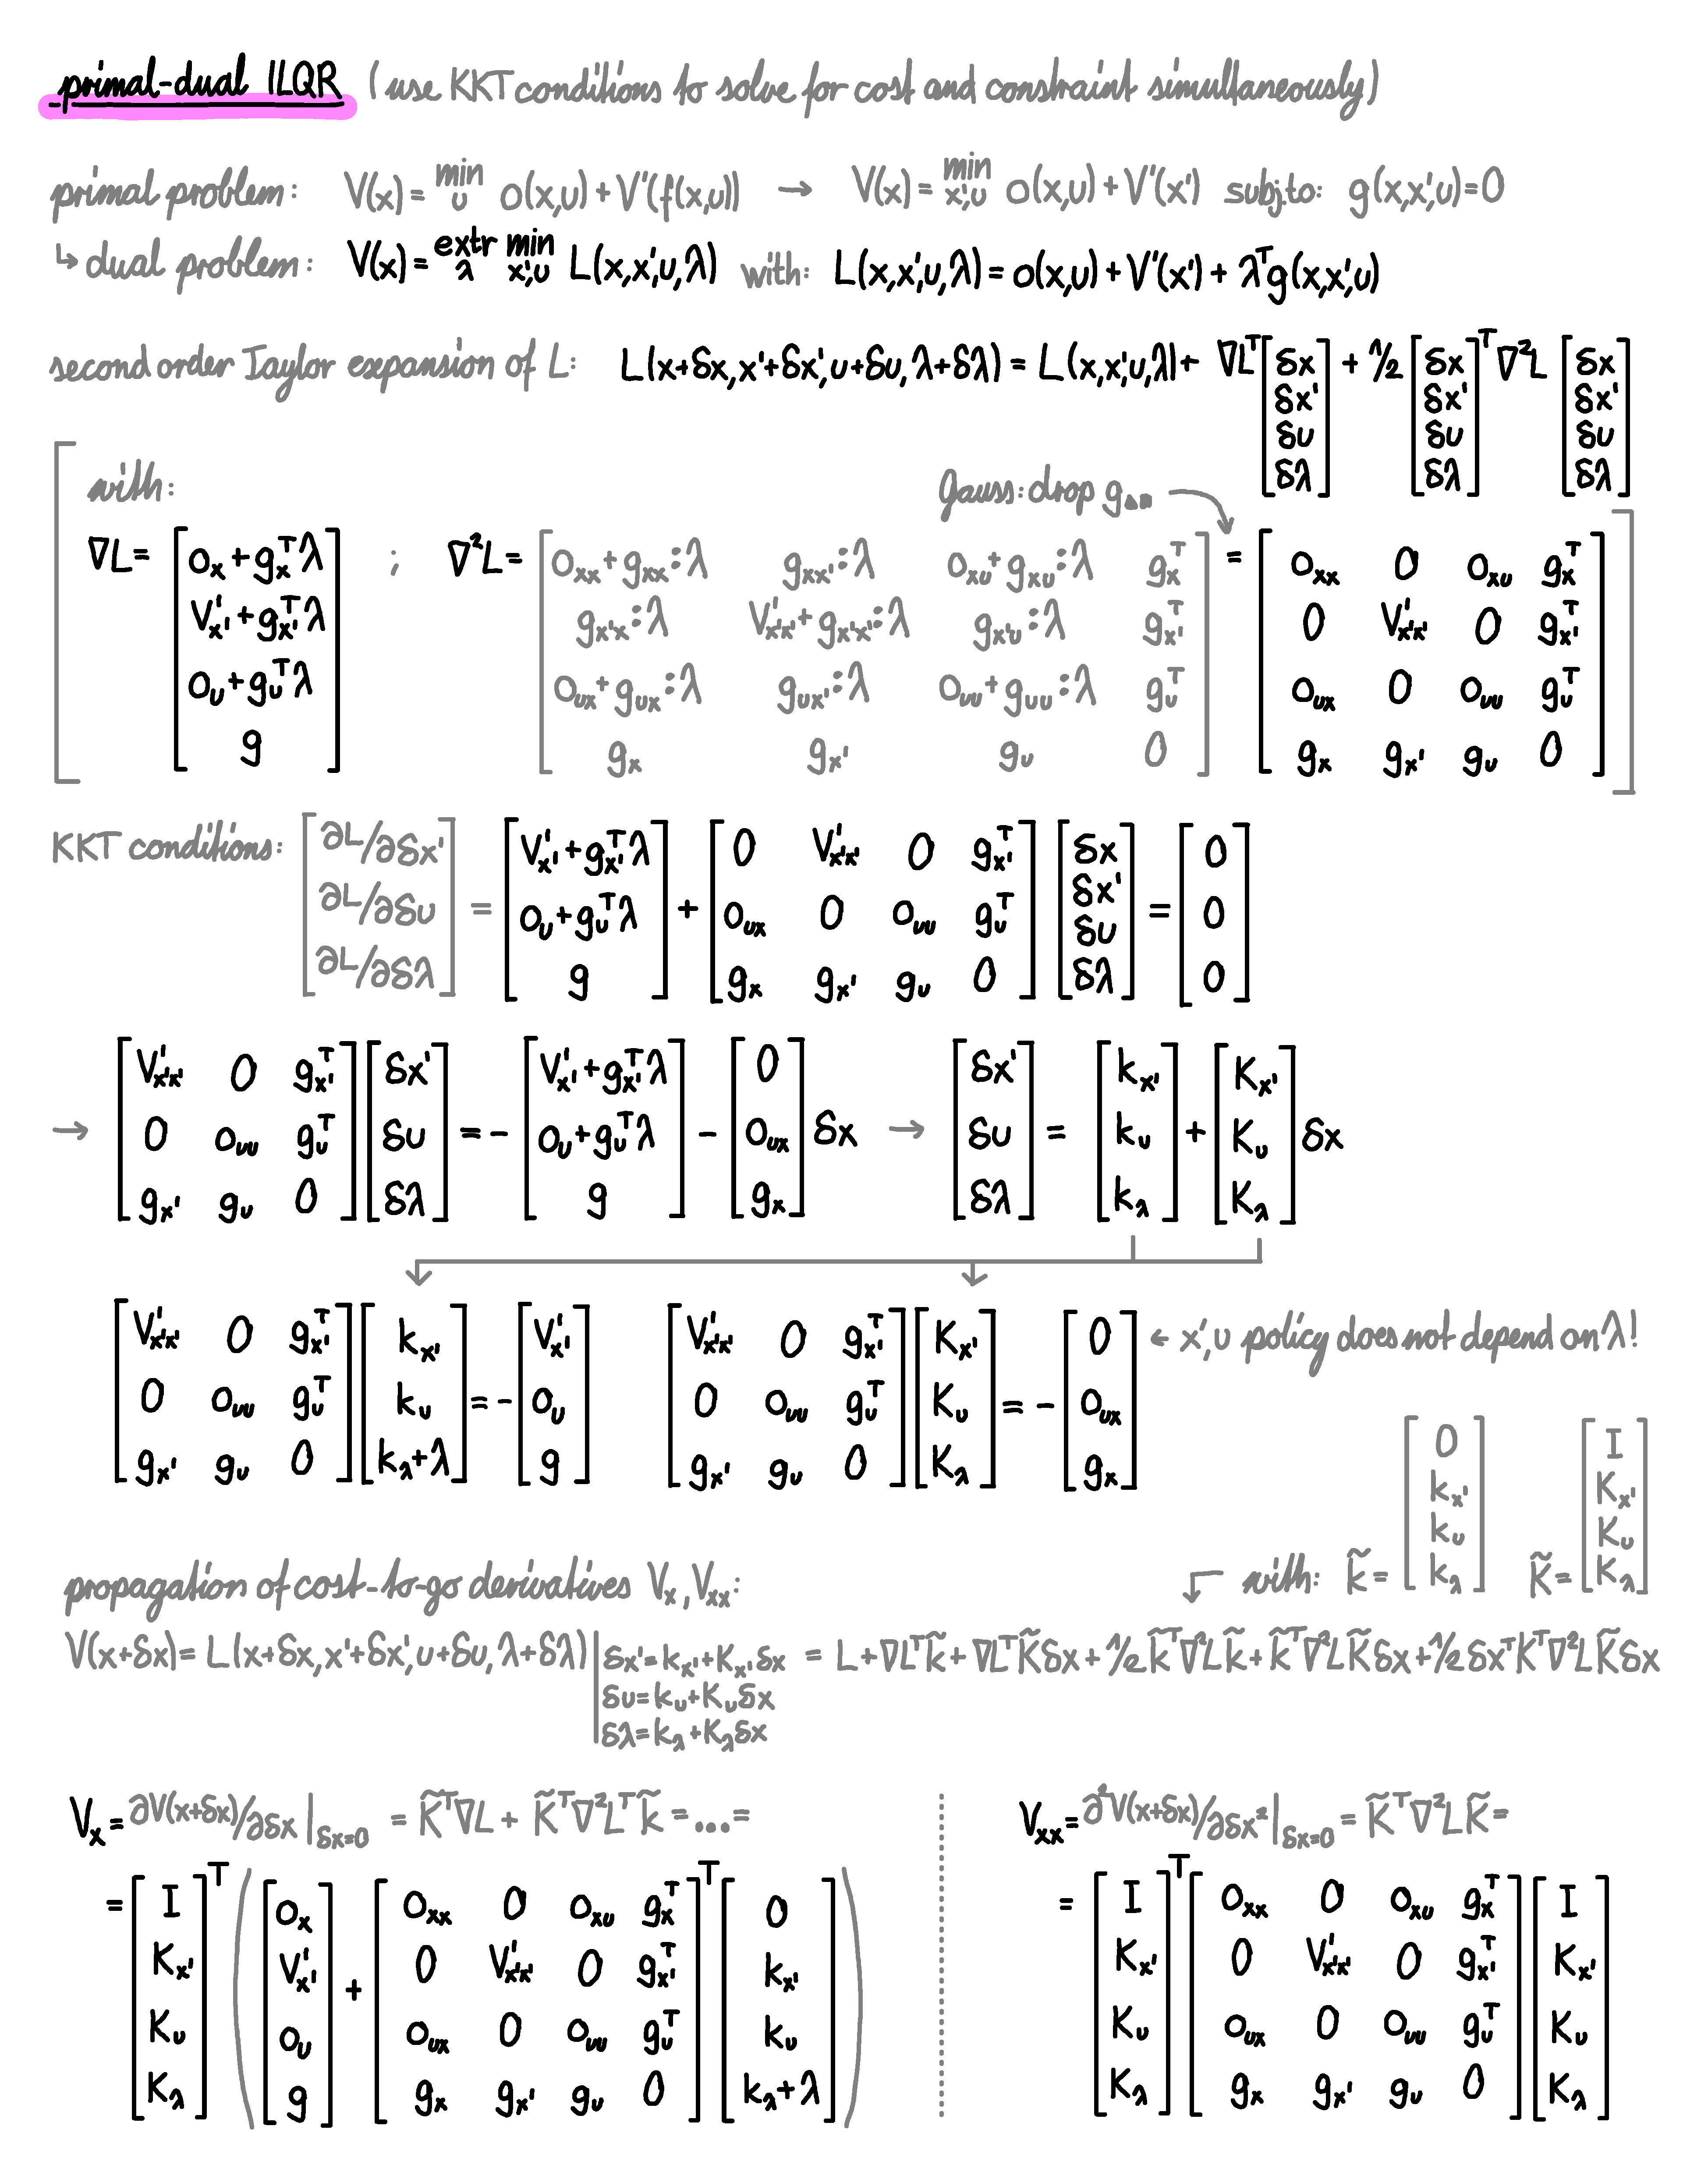 primal-dual ILQR (use KKT conditions to solve for cost and constraint simultaneously)
primal problem: V(x) = min_u o(x,u) + V'(f(x,u)) → V(x) = min_{x',u} o(x,u) + V'(x') subj.to: g(x,x',u)=0
↳ dual problem: V(x) = extr_λ min_{x',u} L(x,x',u,λ) with: L(x,x',u,λ) = o(x,u) + V'(x') + λ^T g(x,x',u)
second order Taylor expansion of L: L(x+δx, x'+δx', u+δu, λ+δλ) = L(x,x',u,λ) + ∇L^T [δx; δx'; δu; δλ] + 1/2 [δx; δx'; δu; δλ]^T ∇²L [δx; δx'; δu; δλ]
with: Gauss: drop g_{ΔΔ}
∇L = [o_x + g_x^T λ; V'_{x'} + g_{x'}^T λ; o_u + g_u^T λ; g] ; ∇²L = [o_xx + g_xx:λ, g_xx':λ, o_xu + g_xu:λ, g_x^T; g_x'x:λ, V'_x'x' + g_x'x':λ, g_x'u:λ, g_x'^T; o_ux + g_ux:λ, g_ux':λ, o_uu + g_uu:λ, g_u^T; g_x, g_x', g_u, 0] = [o_xx, 0, o_xu, g_x^T; 0, V'_x'x', 0, g_x'^T; o_ux, 0, o_uu, g_u^T; g_x, g_x', g_u, 0]
KKT conditions: [∂L/∂δx'; ∂L/∂δu; ∂L/∂δλ] = [V'_x' + g_x'^T λ; o_u + g_u^T λ; g] + [0, V'_x'x', 0, g_x'^T; o_ux, 0, o_uu, g_u^T; g_x, g_x', g_u, 0] [δx; δx'; δu; δλ] = [0; 0; 0]
→ [V'_x'x', 0, g_x'^T; 0, o_uu, g_u^T; g_x', g_u, 0] [δx'; δu; δλ] = - [V'_x' + g_x'^T λ; o_u + g_u^T λ; g] - [0; o_ux; g_x] δx → [δx'; δu; δλ] = [k_x'; k_u; k_λ] + [K_x'; K_u; K_λ] δx
[V'_x'x', 0, g_x'^T; 0, o_uu, g_u^T; g_x', g_u, 0] [k_x'; k_u; k_λ+λ] = - [V'_x'; o_u; g] [V'_x'x', 0, g_x'^T; 0, o_uu, g_u^T; g_x', g_u, 0] [K_x'; K_u; K_λ] = - [0; o_ux; g_x] ← x',u policy does not depend on λ!
propagation of cost-to-go derivatives V_x, V_xx: with: k̃ = [0; k_x'; k_u; k_λ] K̃ = [I; K_x'; K_u; K_λ]
V(x+δx) = L(x+δx, x'+δx', u+δu, λ+δλ) | δx'=k_x'+K_x'δx = L + ∇L^T k̃ + ∇L^T K̃δx + 1/2 k̃^T ∇²L k̃ + k̃^T ∇²L K̃δx + 1/2 δx^T K^T ∇²L K̃δx
δu=k_u+K_uδx
δλ=k_λ+K_λδx
V_x = ∂V(x+δx)/∂δx |_{δx=0} = K̃^T ∇L + K̃^T ∇²L^T k̃ = ... =
= [I; K_x'; K_u; K_λ]^T ([o_x; V'_x'; o_u; g] + [o_xx, 0, o_xu, g_x^T; 0, V'_x'x', 0, g_x'^T; o_ux, 0, o_uu, g_u^T; g_x, g_x', g_u, 0]^T [0; k_x'; k_u; k_λ+λ])
V_xx = ∂²V(x+δx)/∂δx² |_{δx=0} = K̃^T ∇²L K̃ =
= [I; K_x'; K_u; K_λ]^T [o_xx, 0, o_xu, g_x^T; 0, V'_x'x', 0, g_x'^T; o_ux, 0, o_uu, g_u^T; g_x, g_x', g_u, 0] [I; K_x'; K_u; K_λ]